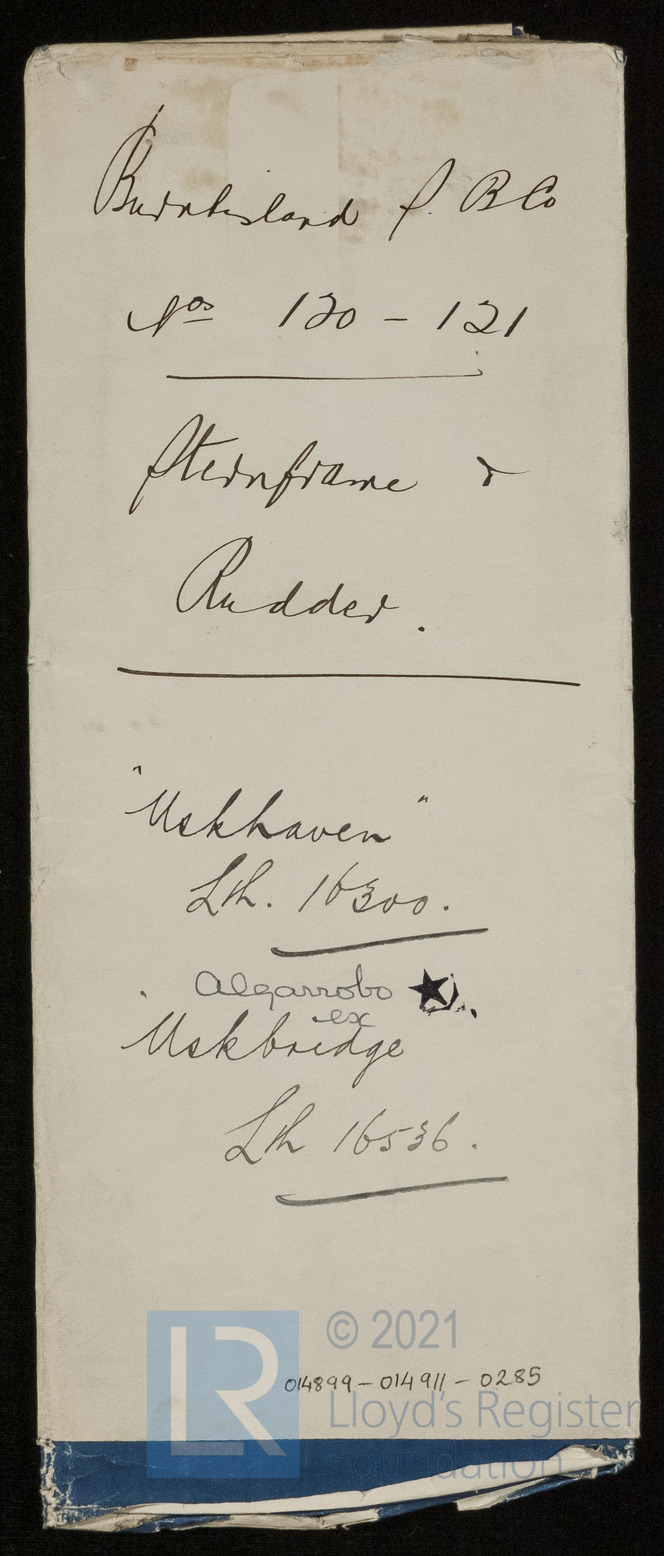 Burntisland S. B Co
Nos 120 - 121
Sternframe &
Rudder.
"Uskhaven"
Lth. 16300.
Algarrobo
ex
Uskbridge
Lth 16536.
© 2021
014899-014911-0285
LR
Lloyd's Register
Foundation